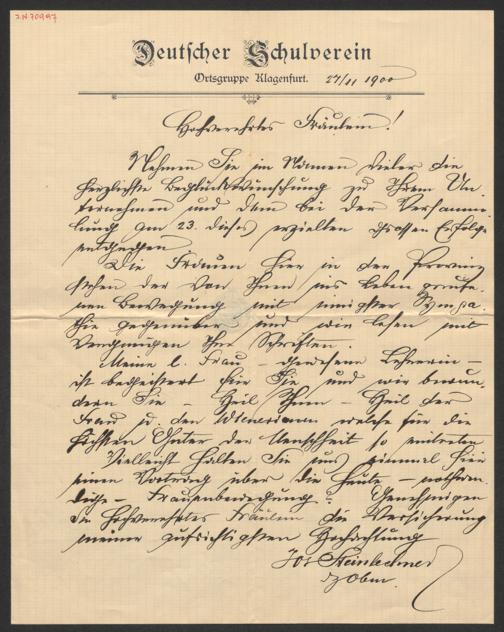 J.N. 70997
Deutscher Schulverein
Ortsgruppe Klagenfurt. 27/11 1900
Hochverehrtes Fräulein!
Nehmen Sie im Namen vieler die
herzlichste Beglückwünschung zu Ihrem Un-
ternehmen und dem bei der Versamm-
lung am 23. dieses erzielten grossen Erfolge
entgegen
Die Frauen hier in der Provinz
stehen der von Ihnen ins Leben gerufe-
nen Bewegung mit innigster Sympa-
thie gegenüber und wir lesen mit
Vergnügen Ihre Schriften.
Meine l. Frau – gewesene Lehrerin –
ist begeistert für Sie und wir bewun-
dern Sie – Heil Ihnen – Heil der
Frau u. den Wienerinen welche für die
höchsten Güter der Menschheit so eintreten
Vielleicht halten Sie uns einmal hier
einen Vortrag über die heute – nothwen-
dige – Frauenbewegung? Genehmigen
Sie hochverehrtes Fräulein die Versicherung
meiner aufrichtigsten Hochachtung
Jos Steinlechner
Obm.